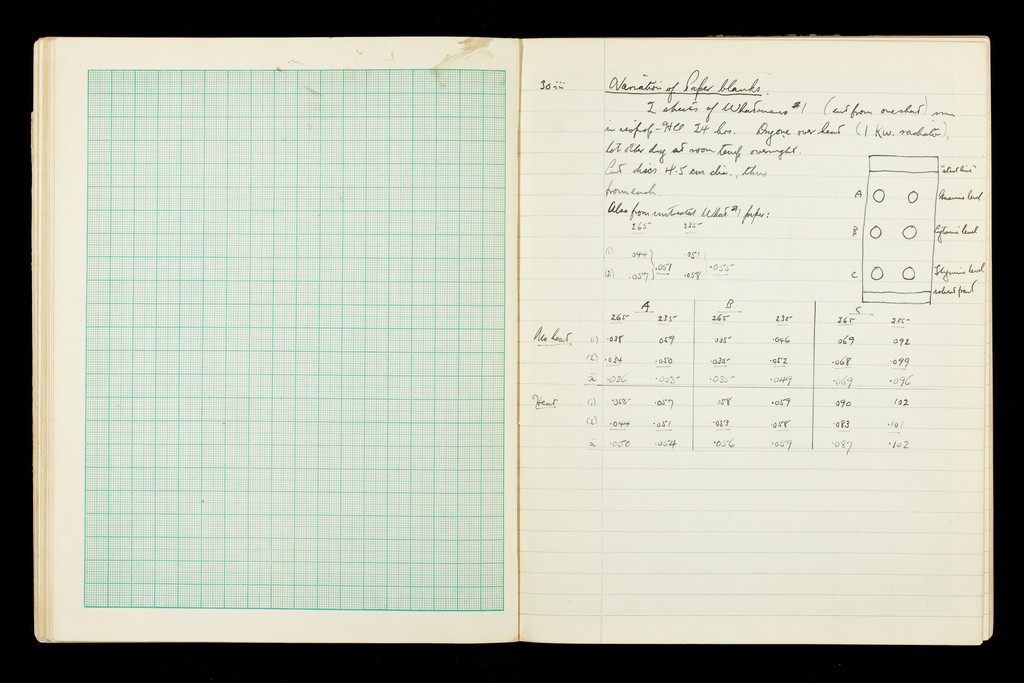 30 iii
Variation of Paper blanks.
2 sheets of Whatmans #1 (cut from one sheet) run
in isoprop-HCl 24 hrs. Dry one over heat (1 Kw. radiator),
let other dry at room temp overnight.
Cut discs 4.5 cm dia., thus
from each.
Also from untreated What. #1 paper:
265 235
(1) .044 .051
.051 .055
(2) .057 .058
"start line"
A Guanine level
B Cytosine level
C Thymine level
solvent front
A B C
265 235 265 235 265 235
No heat. (1) .038 .059 .035 .046 .069 .092
(2) .034 .050 .035 .052 .068 .099
x̄ .036 .035 .049 .069 .096
Heat (1) .057 .058 .059 .090 .102
(2) .044 .051 .053 .058 .083 .101
x̄ .050 .054 .056 .059 .087 .102